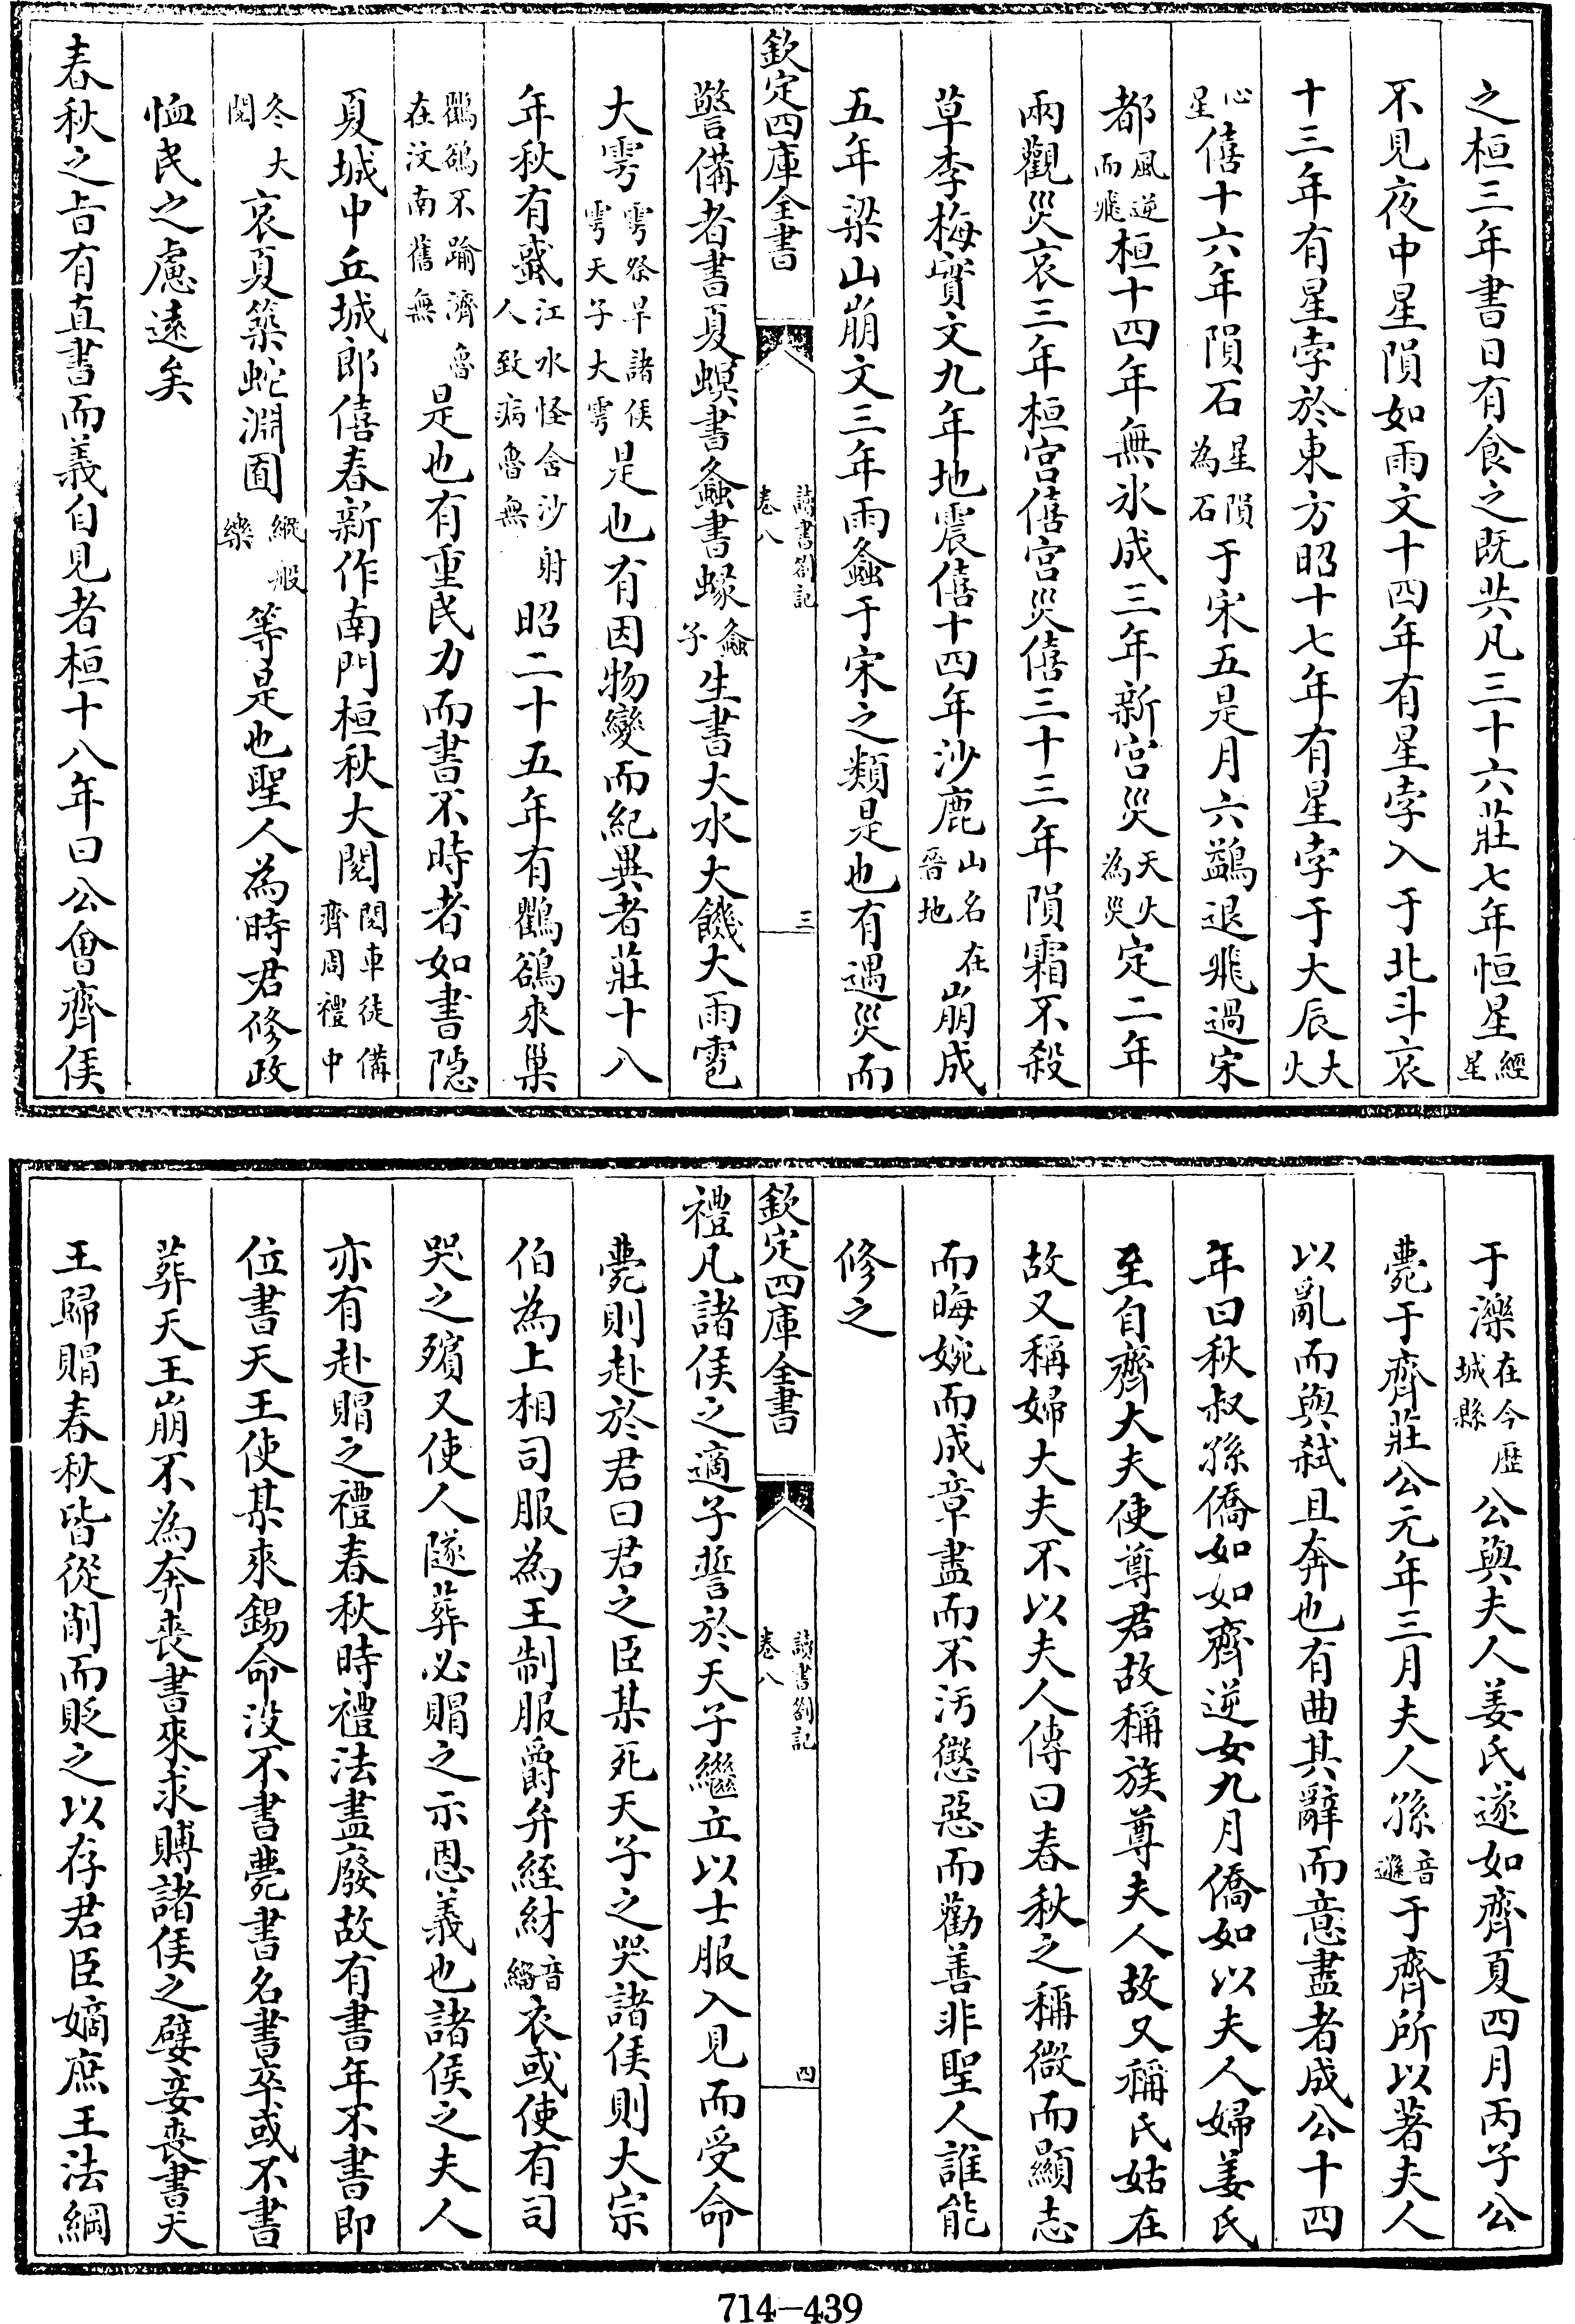 之桓三年書日有食之既共凡三十六莊七年恒星經星
不見夜中星隕如雨文十四年有星孛入于北斗哀
十三年有星孛於東方昭十七年有星孛于大辰大火
心星僖十六年隕石星隕為石于宋五是月六鷁退飛過宋
都風逆而飛桓十四年無氷成三年新宫災天火為災定二年
兩觀災哀三年桓宫僖宫災僖三十三年隕霜不殺
草李梅實文九年地震僖十四年沙鹿山名在晉地崩成
五年梁山崩文三年雨螽于宋之類是也有遇災而
欽定四庫全書
讀書劄記
卷八
三
警備者書夏螟書螽書蝝螽子生書大水大饑大雨雹
大雩雩祭旱諸侯雩天子大雩是也有因物變而紀異者莊十八
年秋有蜮江水怪含沙射人致病魯無昭二十五年有鸜鵒來巢
鸜鵒不踰濟魯在汶南舊無是也有重民力而書不時者如書隠
夏城中丘城郎僖春新作南門桓秋大閱閱車徒備齊周禮中
冬大閱哀夏築蛇淵囿縱般樂等是也聖人為時君修政
恤民之慮遠矣
春秋之旨有直書而義自見者桓十八年曰公會齊侯
于濼在今歴城縣公與夫人姜氏遂如齊夏四月丙子公
薨于齊莊公元年三月夫人孫音遜于齊所以著夫人
以亂而與弑且奔也有曲其辭而意盡者成公十四
年曰秋叔孫僑如如齊逆女九月僑如以夫人婦姜氏
至自齊大夫使尊君故稱族尊夫人故又稱氏姑在
故又稱婦大夫不以夫人傳曰春秋之稱微而顯志
而晦婉而成章盡而不汚懲惡而勸善非聖人誰能
修之
欽定四庫全書
讀書劄記
卷八
四
禮凡諸侯之適子誓於天子繼立以士服入見而受命
薨則赴於君曰君之臣某死天子之哭諸侯則大宗
伯為上相司服為王制服爵弁絰紂音緇衣或使有司
哭之殯又使人隧葬必賵之示恩義也諸侯之夫人
亦有赴賵之禮春秋時禮法盡廢故有書年不書即
位書天王使某來錫命没不書薨書名書卒或不書
葬天王崩不為奔喪書來求賻諸侯之嬖妾喪書天
王歸賵春秋皆從削而貶之以存君臣嫡庶王法綱
714-439